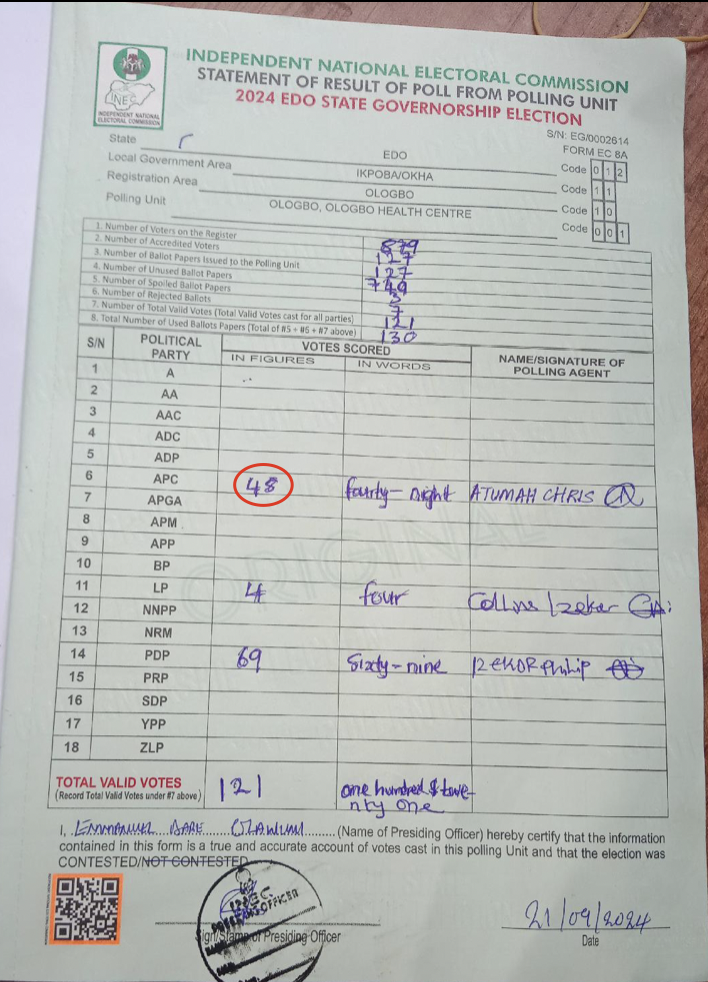 INDEPENDENT NATIONAL ELECTORAL COMMISSION
STATEMENT OF RESULT OF POLL FROM POLLING UNIT
2024 EDO STATE GOVERNORSHIP ELECTION
INEC
INDEPENDENT NATIONAL ELECTORAL COMMISSION
S/N: EG/0002614
FORM EC 8A
State EDO Code 0 1 2
Local Government Area IKPOBA/OKHA Code 1 1
Registration Area OLOGBO Code 1 0
Polling Unit OLOGBO, OLOGBO HEALTH CENTRE Code 0 0 1
1. Number of Voters on the Register 879
2. Number of Accredited Voters 127
3. Number of Ballot Papers Issued to the Polling Unit 127
4. Number of Unused Ballot Papers 749
5. Number of Spoiled Ballot Papers 3
6. Number of Rejected Ballots 7
7. Number of Total Valid Votes (Total Valid Votes cast for all parties) 121
8. Total Number of Used Ballots Papers (Total of #5 + #6 + #7 above) 130
S/N POLITICAL PARTY VOTES SCORED NAME/SIGNATURE OF POLLING AGENT
IN FIGURES IN WORDS
1 A
2 AA
3 AAC
4 ADC
5 ADP
6 APC 48 fourty-night ATUMAH CHRIS
7 APGA
8 APM
9 APP
10 BP
11 LP 4 four Collins Izekor
12 NNPP
13 NRM
14 PDP 69 Sixty-nine IZEKOR Philip
15 PRP
16 SDP
17 YPP
18 ZLP
ORIGINAL
TOTAL VALID VOTES 121 one hundred & twe-
(Record Total Valid Votes under #7 above) nty one
I, EMMANUEL DARE (Name of Presiding Officer) hereby certify that the information
contained in this form is a true and accurate account of votes cast in this polling Unit and that the election was
CONTESTED/NOT CONTESTED
INEC
Sign/Stamp of Presiding Officer
21/09/2024
Date